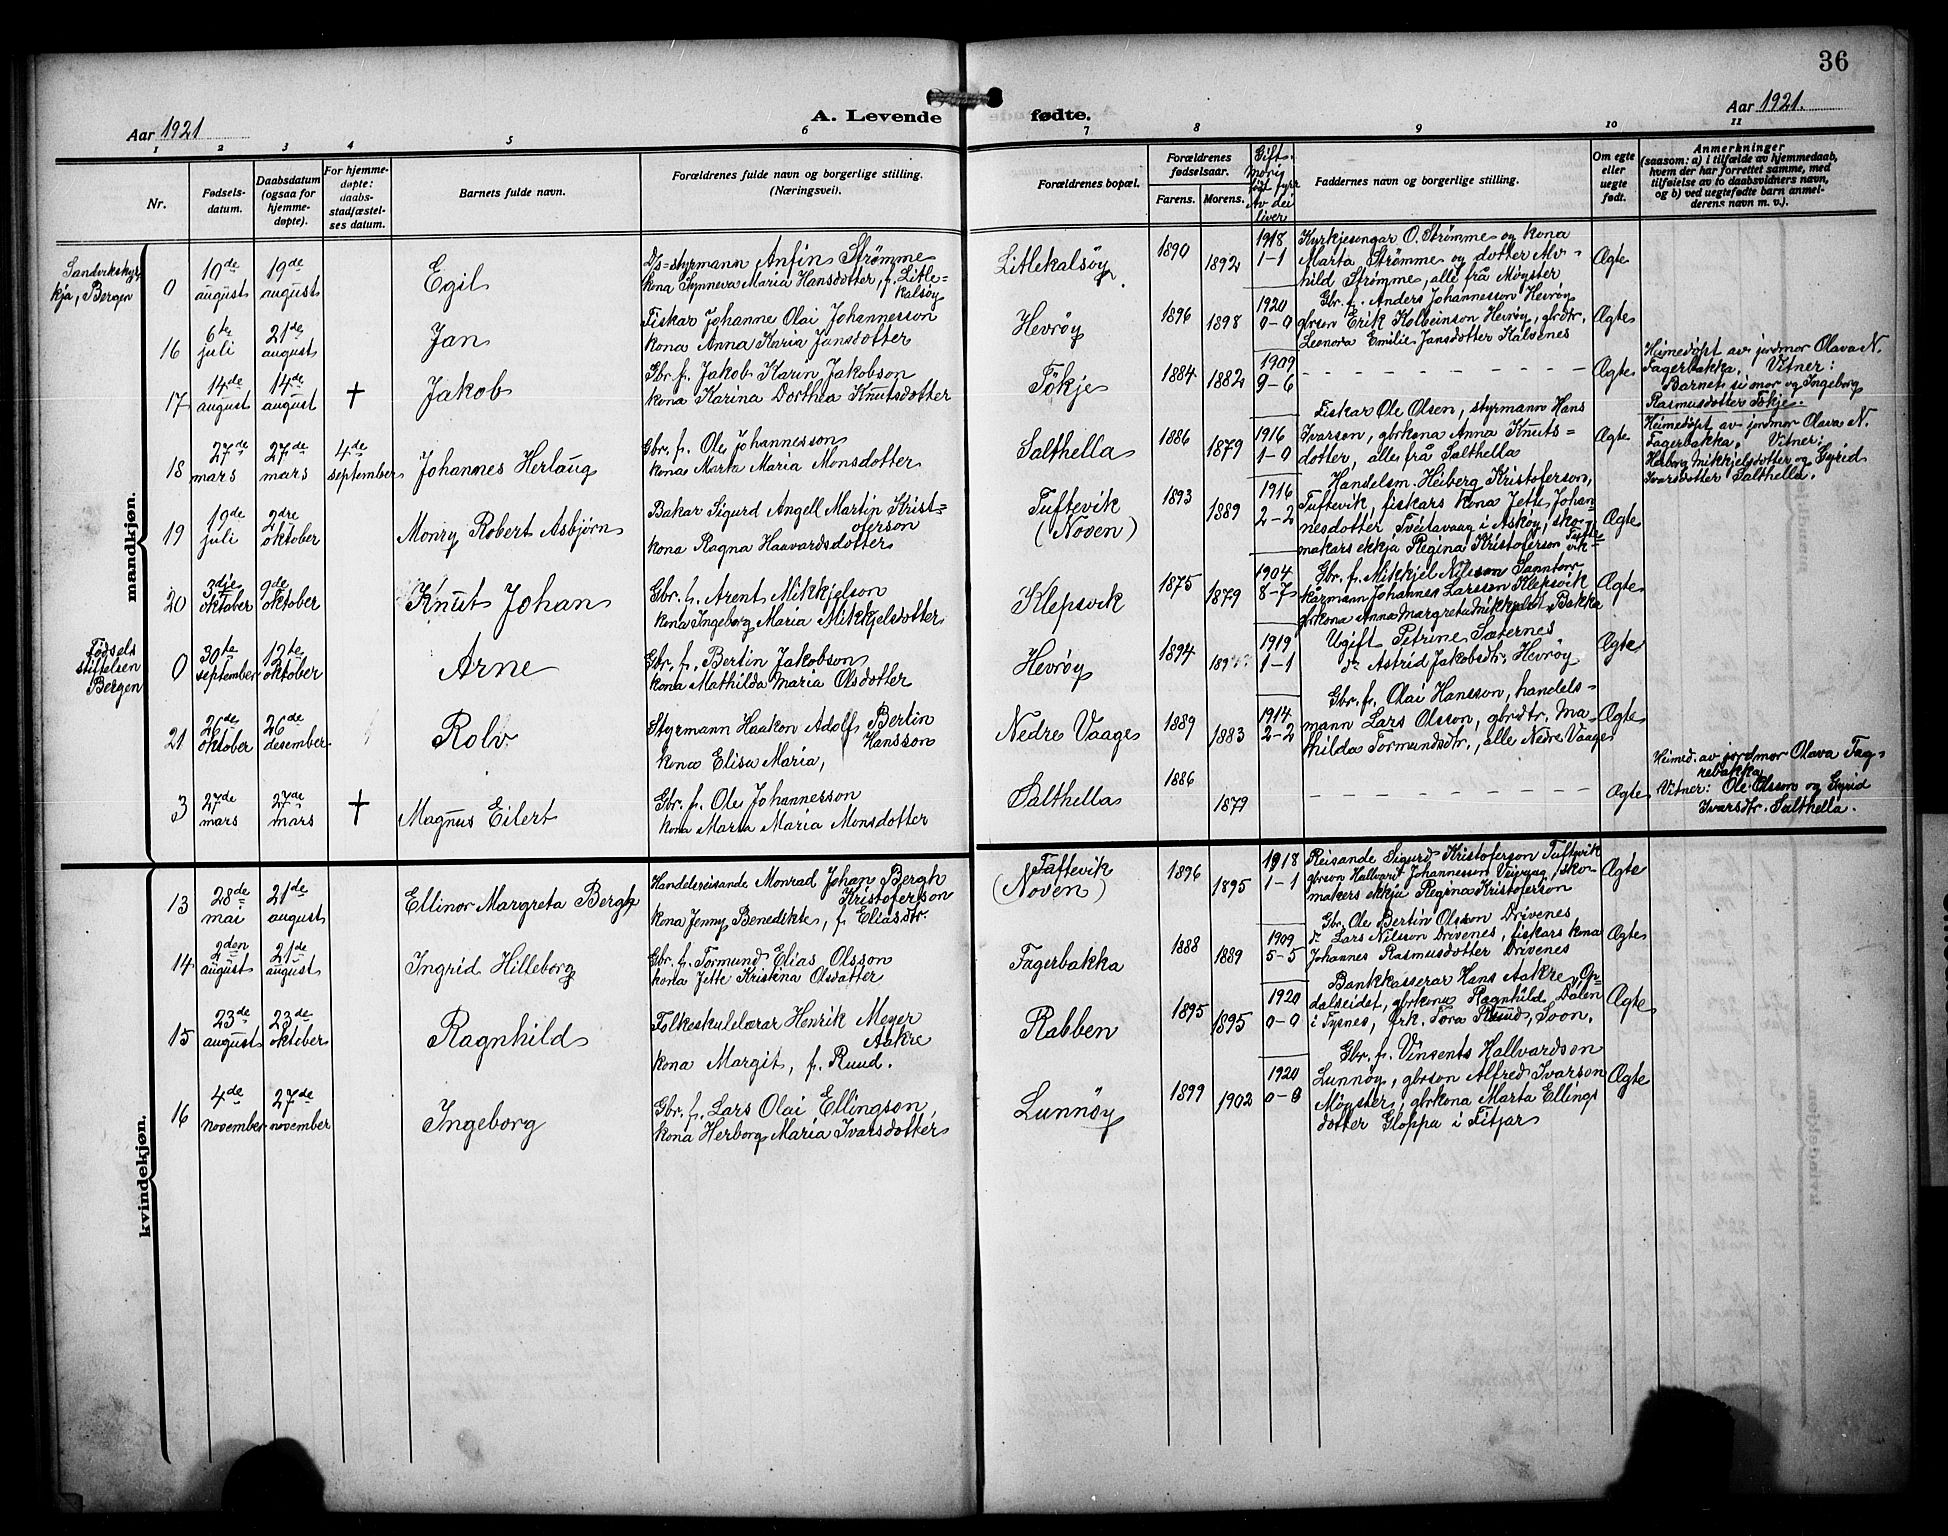 36
Aar 1921
A. Levende fødte.
Aar 1921.
1 2 3 4 5 6 7 8 9 10 11
Nr.
Fødsels-
datum.
Daabsdatum
(ogsaa for
hjemme-
døpte).
For hjemme-
døpte:
daabs-
stadfæstel-
ses datum.
Barnets fulde navn.
Forældrenes fulde navn og borgerlige stilling.
(Næringsvei).
Forældrenes bopæl.
Forældrenes
fødselsaar.
Farens. Morens.
Faddernes navn og borgerlige stilling.
Om egte
eller
uegte
født.
Anmerkninger
(saasom: a) i tilfælde av hjemmedaab,
hvem der har forrettet samme, med
tilføielse av to daabsvidners navn,
og b) ved uegtefødte barn anmel-
derens navn m. v.).
mandkjøn.
Sandvikskyr
kja, Bergen
0
10de
august
19de
august
Egil
D/s=styrmann Anfin Strømme
kona Synneva Maria Hansdotter, f. Litle=
kalsøy
Litlekalsöy
1890
1892
1918
1-1
Kyrkjesongar O. Strømme og kona
Marta Strømme og dotter
hild Strømme, alle frå Møgster
Ægte
16
6te
juli
21de
august
Jan
Fiskar Johanne Olai Johannesson
kona Anna Karia Jansdotter
Hevrøy
1896
1898
1920
0-0
Gbr. f. Anders Johannesson Hevrøy
gbrson Erik Kolbeinson Hevrøy, gbrdtr.
Leonora Emilie Jansdotter Kalvenes
Ægte
17
14de
august
14de
august
+
Jakob
Gbr. f. Jakob Karin Jakobson
kona Karina Dorthea Knutsdotter
Tökje
1884
1882
1909
9-6
Ægte
Heimedöpt av jordmor Olava N.
Fagerbakka. Vitner:
Barnets mor og Ingeborg
Rasmusdotter Tökje.
18
27de
mars
27de
mars
4de
september
Johannes Herlaug
Gbr. f. Ole Johannesson
kona Marta Maria Monsdotter
Salthella
1886
1879
1916
1-0
Fiskar Ole Olsen, styrmann Hans
Ivarson, gbrkona Anna Knuts=
dotter, alle frå Salthella
Ægte
Heimedöpt av jordmor Olava N.
Fagerbakka. Vitner:
Herborg Mikkjelsdotter og Gyrid
Ivarsdotter Salthella.
19
19de
juli
2dre
oktober
Monry Robert Asbjørn
Bakar Sigurd Angell Martin Krist=
oferson
kona Ragna Haavardsdotter
Tuftevik
(Noven)
1893
1889
1916
2-2
Handelsm. Heiberg Kristoferson,
Tuftevik, fiskars kona Jette Johan-
nesdotter Tveitavaag i Askøy, sko-
makars ekkja Regina Kristoferson Tufte
vik
Ægte
20
3die
oktober
9de
oktober
Knut Johan
Gbr. f. Arent Mikkjelson
kona Ingeborg Maria Mikkjelsdotter
Klepsvik
1875
1879
1904
8-7
Gbr. f. Mikkjel Nilsson
Johannes Larsson Klepsvik
gbrkona Anna Margreta Bakka
Ægte
Födsels
stiftelsen
Bergen
0
30te
september
12te
oktober
Arne
Gbr. f. Bertin Jakobson
kona Mathilda Maria Olsdotter
Hevrøy
1894
1919
1-1
Ugift Petrine Sæternes
Astrid Jakobsdtr. Hevrøy
Ægte
21
26de
oktober
26de
desember
Rolv
Styrmann Haakon Adolf Bertin
Hansson
kona Elisa Maria,
Nedre Vaage
1889
1883
1914
2-2
Gbr. f. Olai Hansson, handels-
mann Lars Olsson, gbrdtr. Ma-
thilda Tormundsdtr., alle Nedre Vaage
Ægte
3
27de
mars
27de
mars
+
Magnus Eilert
Gbr. f. Ole Johannesson
kona Marta Maria Monsdotter
Salthella
1886
1879
Ægte
Heimed. av jordmor Olava Fag-
rebakka
Vitner: Ole Olsson og Gyrid
Ivarsdtr. Salthella.
kvindekjøn.
13
28de
mai
21de
august
Ellinor Margreta Bergh
Handelsreisande Monrad Johan Bergh
Kristoferson
kona Jenny Benedikte, f. Eliasdtr.
Tuftevik
(Noven)
1896
1895
1918
1-1
Reisande Sigurd Kristoferson Tuftevik
gbrson Hallvard Johannesson sko-
makers ekkja Regina Kristoferson
Ægte
14
2den
august
21de
august
Ingrid Hilleborg
Gbr. f. Tormund Elias Olsson
kona Jette Kristina Olsdatter
Fagerbakka
1888
1889
1909
5-5
Gbr. Ole Bertin Olsson Drivenes
Lars Nilsson Drivenes, fiskars kona
Johannes Rasmusdotter Drivenes
Ægte
15
23de
august
23de
oktober
Ragnhild
Folkeskulelærar Henrik Meyer
Aakre
kona Margit, f. Ruud.
Rabben
1895
1895
1920
0-0
Bankkasserar Hans Aakre, Op-
dalseidet, gbrkona Ragnhild Dalen
i Tysnes, frk. Tora Ruud, Loon.
Ægte
16
4de
november
27de
november
Ingeborg
Gbr. f. Lars Olai Ellingson,
kona Herborg Maria Ivarsdotter
Lunnøy
1899
1902
1920
0-0
Gbr. f. Vinsents Hallvardson
Lunnøy, gbrson Alfred Ivarson
Møgster, gbrkona Marta Ellings
dotter Gloppa i Fitjar
Ægte